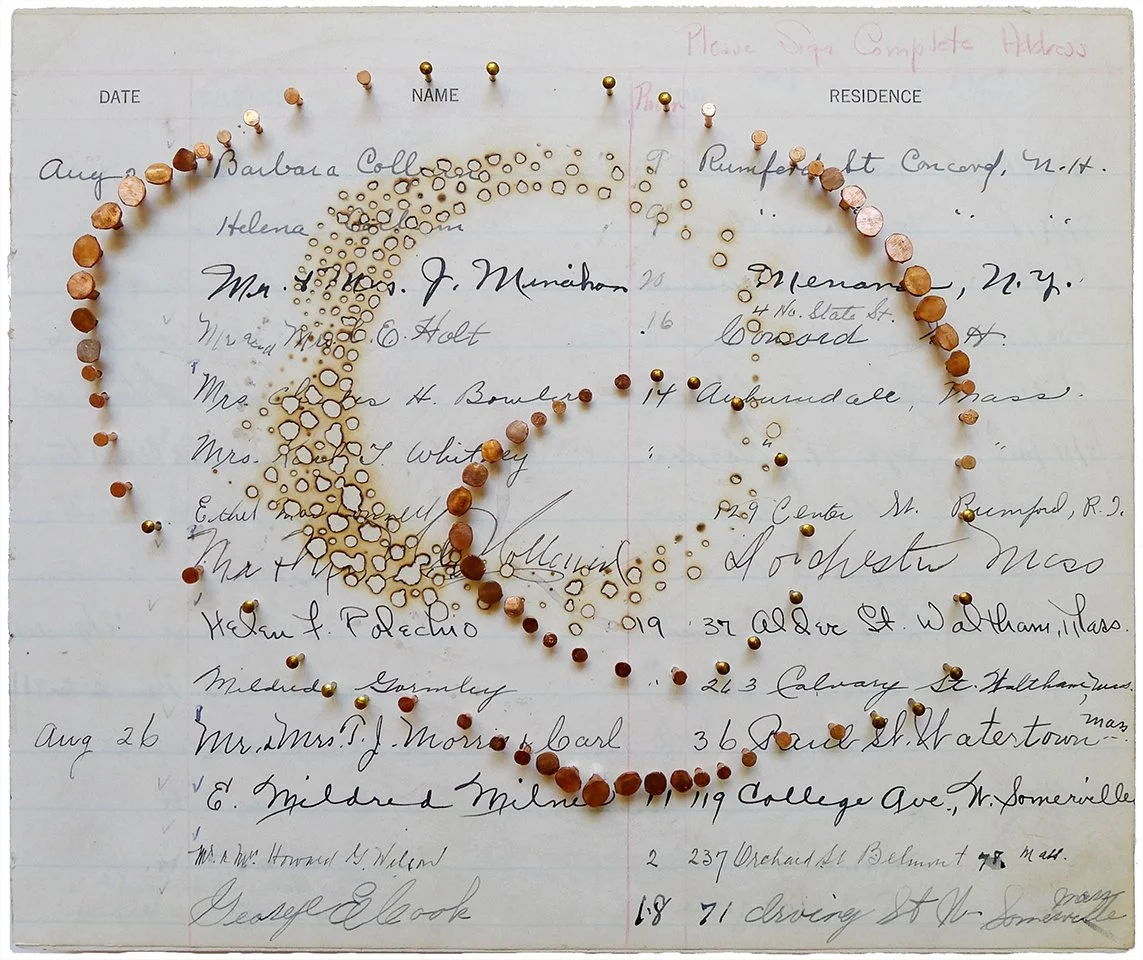 Please Sign Complete Address
DATE NAME Room RESIDENCE
Aug Barbara 9 Rumford St Concord, N.H.
Helena 9 " " "
Mr. & Mrs. J. Minahan 20 , N.Y.
Mr and Mrs. E. Holt 16 4 No. State St. Concord H.
Mrs. H. Bowler 14 Auburndale, Mass.
Mrs. T. Whitney " " "
Ethel 129 Center St. Rumford, R.I.
Mr & Holland Dorchester Mass
Helen F. Polechio 19 37 Alder St. Waltham, Mass.
Mildred Gormley " 263 Calvary St. Waltham, Mass.
Aug 26 Mr. & Mrs. T. J. Morris & Carl 36 Paul St. Watertown Mass.
E. Mildred Milne 11 119 College Ave., W. Somerville
Mr. & Mrs. Howard G. Wilson 2 237 Orchard St Belmont 78. Mass.
George E Cook 18 71 Irving St W Somerville Mass